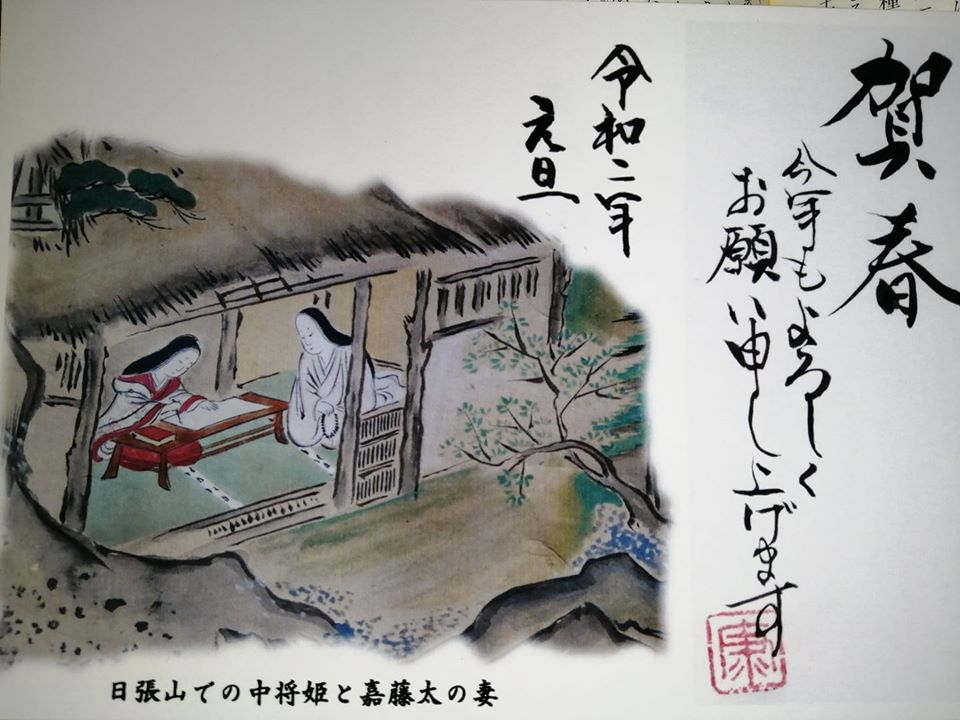 賀春
今年もよろしく
お願い申し上げます
康
令和二年
元旦
日張山での中将姫と嘉藤太の妻